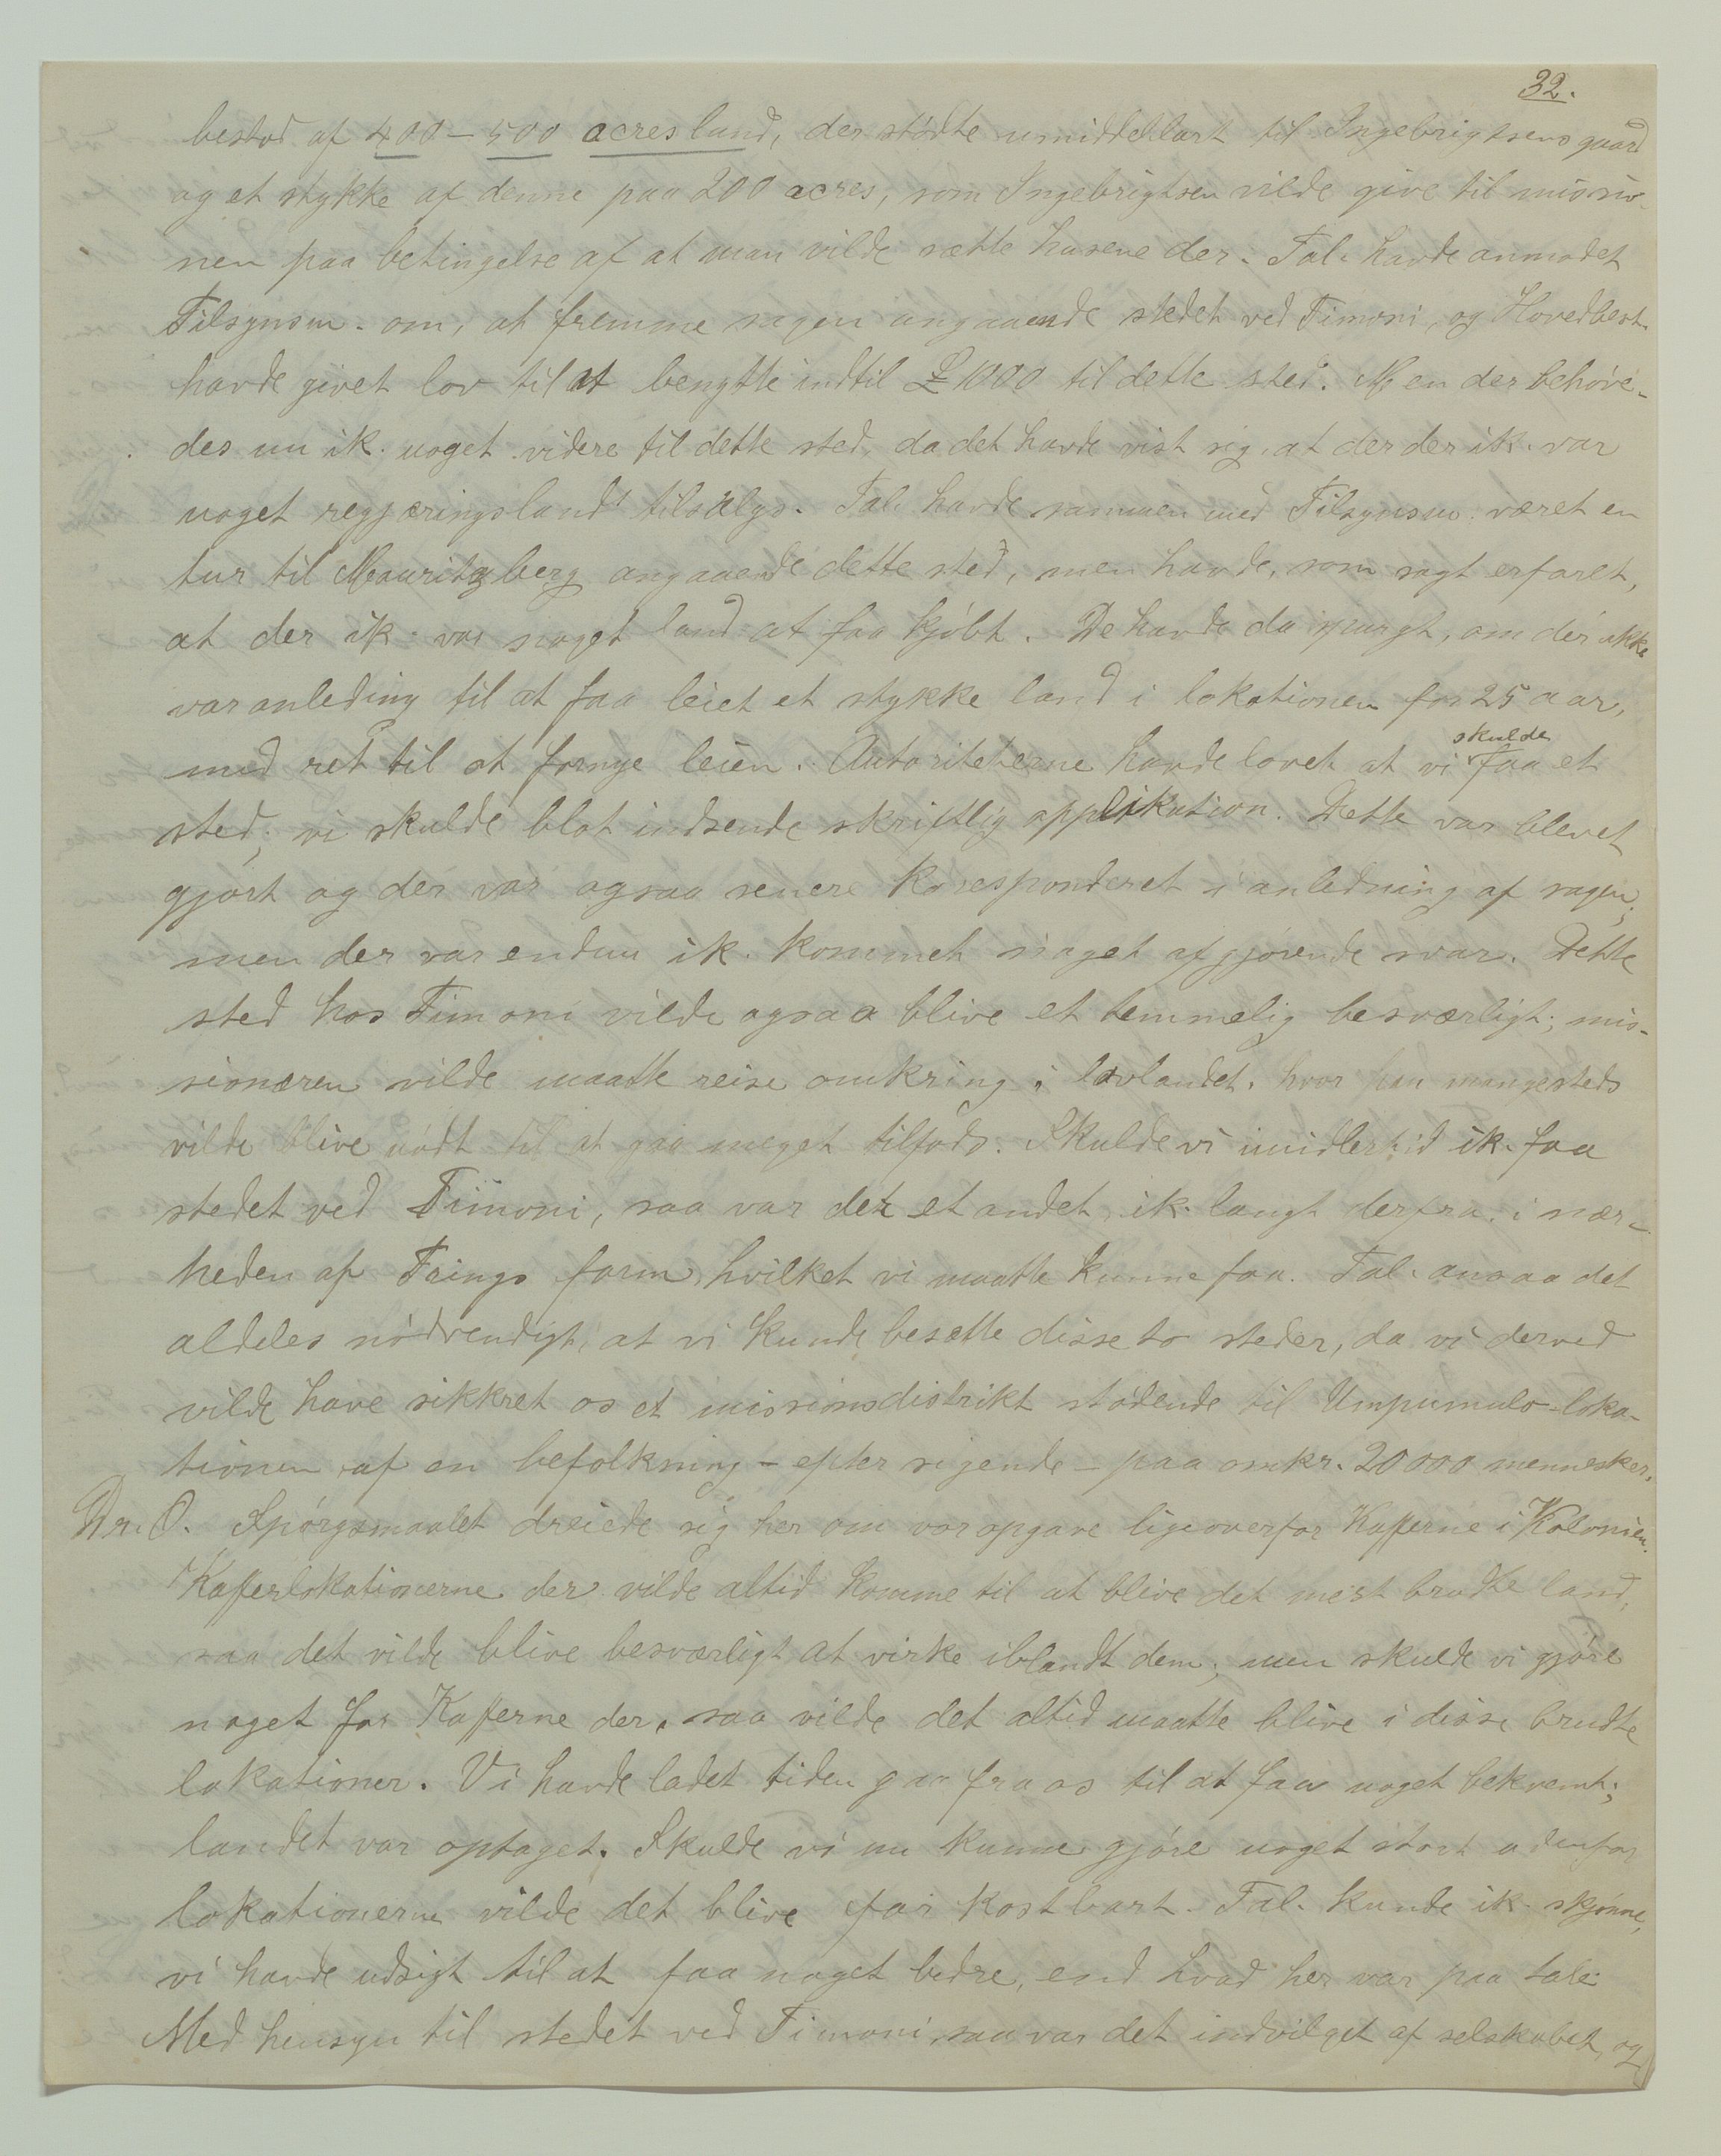 32.
bestod af 400-500 acres land, der stødte umiddelbart til Ingebrigtsens gaard
og et stykke af denne paa 200 acres, som Ingebrigtsen vilde give til missio-
nen paa betingelse af at man vilde sætte husene der. Tal. havde anmodet
Tilsynsm. om, at fremme sagen angaaende stedet ved Timoni, og Hovedbest.
havde givet lov til at benytte indtil £ 1000 til dette sted. Men der behøve-
des nu ik. noget videre til dette sted, da det havde vist sig, at der der ik. var
noget regjæringsland tilsalgs. Tal. havde sammen med Tilsynsm. været en
tur til Mauritzberg angaaende dette sted, men havde, som sagt erfaret,
at der ik. var noget land at faa kjøbt. De havde da spurgt, om der ikke
var anleding til at faa leiet et stykke land i lokationen for 25 aar,
med ret til at fornye leien. Autoriteterne havde lovet at vi skulde faa et
sted; vi skulde blot indsende skriftlig applikation. Dette var blevet
gjort og der var ogsaa senere koresponderet i anledning af sagen;
men der var endnu ik. kommet noget afgjørende svar. Dette
sted hos Timoni vilde ogsaa blive et temmelig besværligt; mis-
sionæren vilde maatte reise omkring i lavlandet, hvor han mangesteds
vilde blive nødt til at gaa meget tilfods. Skulde vi imidlertid ik. faa
stedet ved Timoni, saa var der et andet, ik. langt derfra, i nær-
heden af Frings farm, hvilket vi maatte kunne faa. Tal. ansaa det
aldeles nødvendigt, at vi kunde besætte disse to steder, da vi derved
vilde have sikkret os et missionsdistrikt stødende til Umpumulo-loka-
tionen af en befolkning - efter sigende - paa omkr. 20000 mennesker.
Dr. O. Spørgsmaalet dreiede sig her om vor opgave ligeoverfor Kafferne i Kolonien.
Kafferlokationerne der vilde altid komme til at blive det mest brudte land,
saa det vilde blive besværligt at virke iblandt dem; men skulde vi gjøre
noget for Kafferne der, saa vilde det altid maatte blive i disse brudte
lokationer. Vi havde ladet tiden gaa fra os til at faa noget bekvemt;
landet var optaget. Skulde vi nu kunne gjøre noget stort udenfor
lokationerne vilde det blive for kostbart. Tal. kunde ik. skjønne,
vi havde udsigt til at faa noget bedre, end hvad her var paa tale.
Med hensyn til stedet ved Timoni, saa var det indvilget af selskabet, og